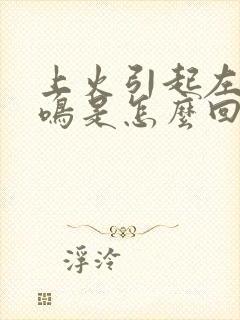 上火引起左
鳴是怎麼回
浮泠